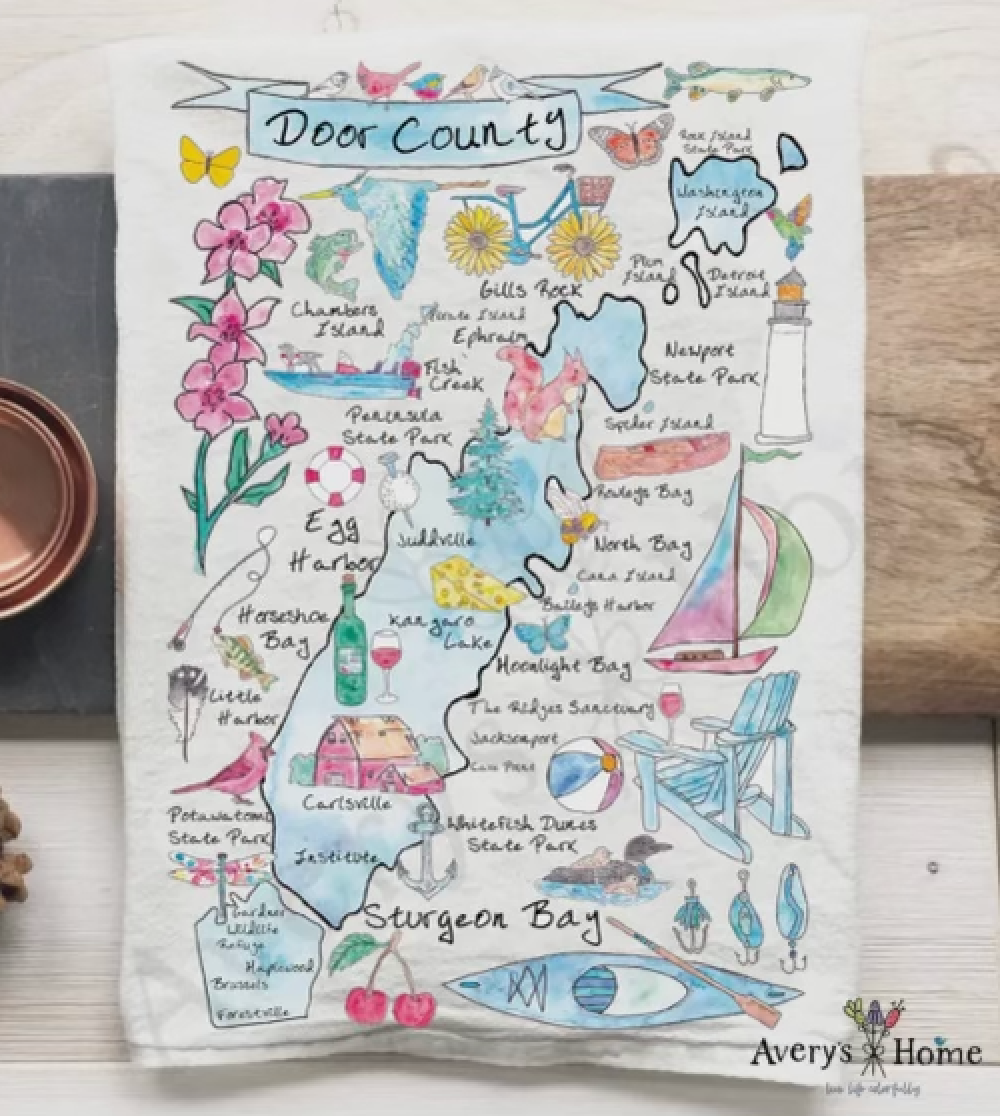 Door County
Rock Island
State Park
Washington
Island
Plum
Island
Detroit
Island
Gills Rock
Chambers
Island
Pirate Island
Ephraim
Fish
Creek
Newport
State Park
Peninsula
State Park
Spider Island
Rowleys Bay
Egg
Harbor
Juddville
North Bay
Cana Island
Baileys Harbor
Horseshoe
Bay
Kangaro
Lake
Moonlight Bay
Little
Harbor
The Ridges Sanctuary
Jacksonport
Cave Point
Carlsville
Potawatomi
State Park
Whitefish Dunes
State Park
Institute
Sturgeon Bay
Gardner
Wildlife
Refuge
Maplewood
Brussels
Forestville
Avery's Home
live life colorfully